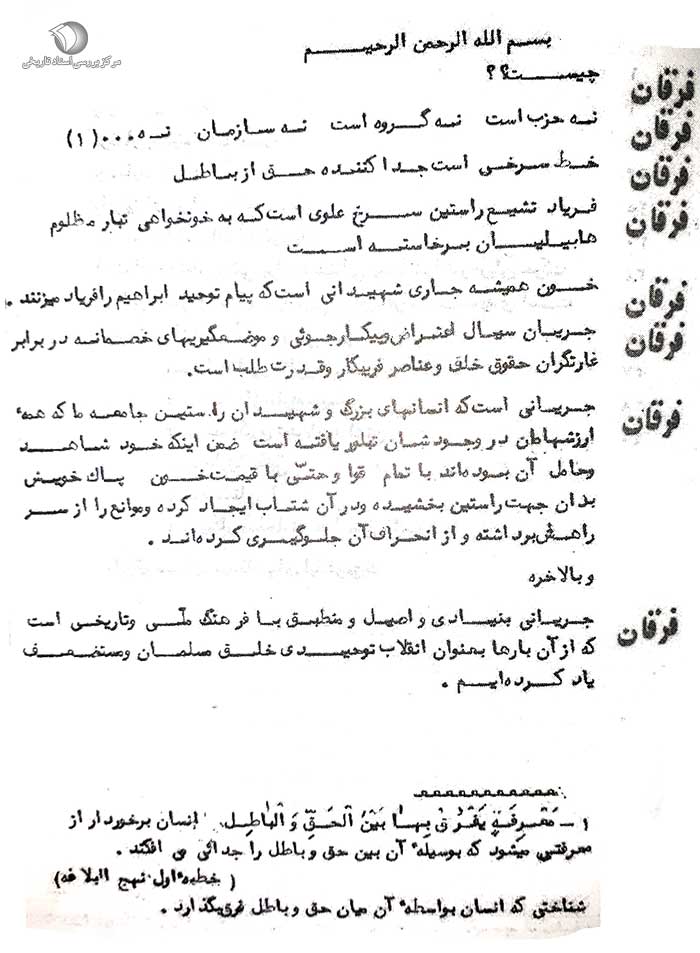 مرکز بررسی اسناد تاریخی
بسم الله الرحمن الرحیم
فرقان چیست؟؟
فرقان نه حزب است نه گروه است نه سازمان نه...(۱)
فرقان خط سرخی است جدا کننده حق از باطل
فرقان فریاد تشیع راستین سرخ علوی است که به خونخواهی تبار مظلوم
هابیلیان برخاسته است
فرقان خون همیشه جاری شهیدانی است که پیام توحید ابراهیم را فریاد میزنند .
فرقان جریان سیال اعتراض و پیکارجوئی و موضعگیریهای خصمانه در برابر
غارتگران حقوق خلق و عناصر فریبکار و قدرت طلب است.
فرقان جریانی است که انسانهای بزرگ و شهیدان راستین جامعه ما که همهٔ
ارزشهاطان در وجودشان تبلور یافته است ضمن اینکه خود شاهد
وحامل آن بوده‌اند با تمام قوا و حتّی با قیمت خون پاک خویش
بدان جهت راستین بخشیده ودر آن شتاب ایجاد کرده وموانع را از سر
راهش برداشته و از انحراف آن جلوگیری کرده‌اند .
و بالاخره
فرقان جریانی بنیادی و اصیل و منطبق با فرهنگ ملّی وتاریخی است
که از آن بارها بعنوان انقلاب توحیدی خلق مسلمان ومستضعف
یاد کرده‌ایم .
۱ – مَعْرِفَةٍ یَفْرُقُ بِهَا بَیْنَ الْحَقِّ وَ الْبَاطِلِ. انسان برخوردار از
معرفتی میشود که بوسیلهٔ آن بین حق و باطل را جدائی می افکند .
( خطبهٔ اول نهج البلاغه)
شناختی که انسان بواسطهٔ آن میان حق و باطل فرق‌یگذارد .